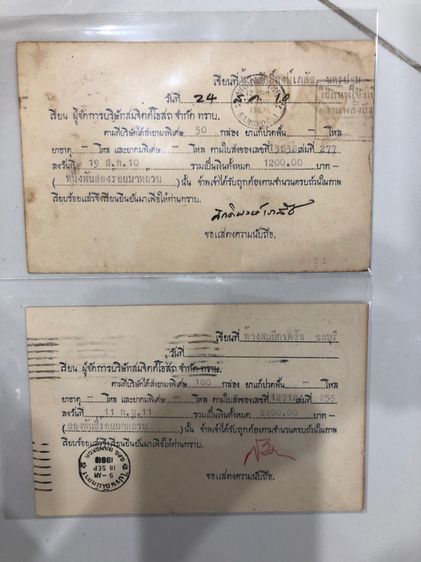 เขียนที่
วันที่ 24 ธ.ค. 10
เรียน ผู้จัดการบริษัทสมจิตต์โอสถ จำกัด ทราบ.
ตามที่บริษัทได้ส่งยามพิเศษ 50 กล่อง ยาแก้ปวดคั้น — โหล
ยาธาตุ — โหล และยาคมพิเศษ — โหล ตามใบส่งของเลขที่ 13850 เล่มที่ 277
ลงวันที่ 19 ธ.ค. 10 รวมเป็นเงินทั้งหมด 1200.00 บาท —
(หนึ่งพันสองร้อยบาทถ้วน) นั้น ข้าพเจ้าได้รับถูกต้องตามจำนวนครบถ้วนในภาพ
เรียบร้อยแล้วจึงเรียนยืนยันมาเพื่อให้ท่านทราบ.
ขอแสดงความนับถือ.
BANGKOK
เขียนที่ ห้างสมปึกเภสัช ชลบุรี
วันที่
เรียน ผู้จัดการบริษัทสมจิตต์โอสถ จำกัด ทราบ.
ตามที่บริษัทได้ส่งยามพิเศษ 100 กล่อง ยาแก้ปวดคั้น — โหล
ยาธาตุ — โหล และยาคมพิเศษ — โหล ตามใบส่งของเลขที่ 12712 เล่มที่ 255
ลงวันที่ 11 ก.ย. 11 รวมเป็นเงินทั้งหมด 2400.00 บาท —
(สองพันสี่ร้อยบาทถ้วน) นั้น ข้าพเจ้าได้รับถูกต้องตามจำนวนครบถ้วนในภาพ
เรียบร้อยแล้วจึงเรียนยืนยันมาเพื่อให้ท่านทราบ.
ขอแสดงความนับถือ.
9 - AM
18 SEP
1968
GPO BANGKOK